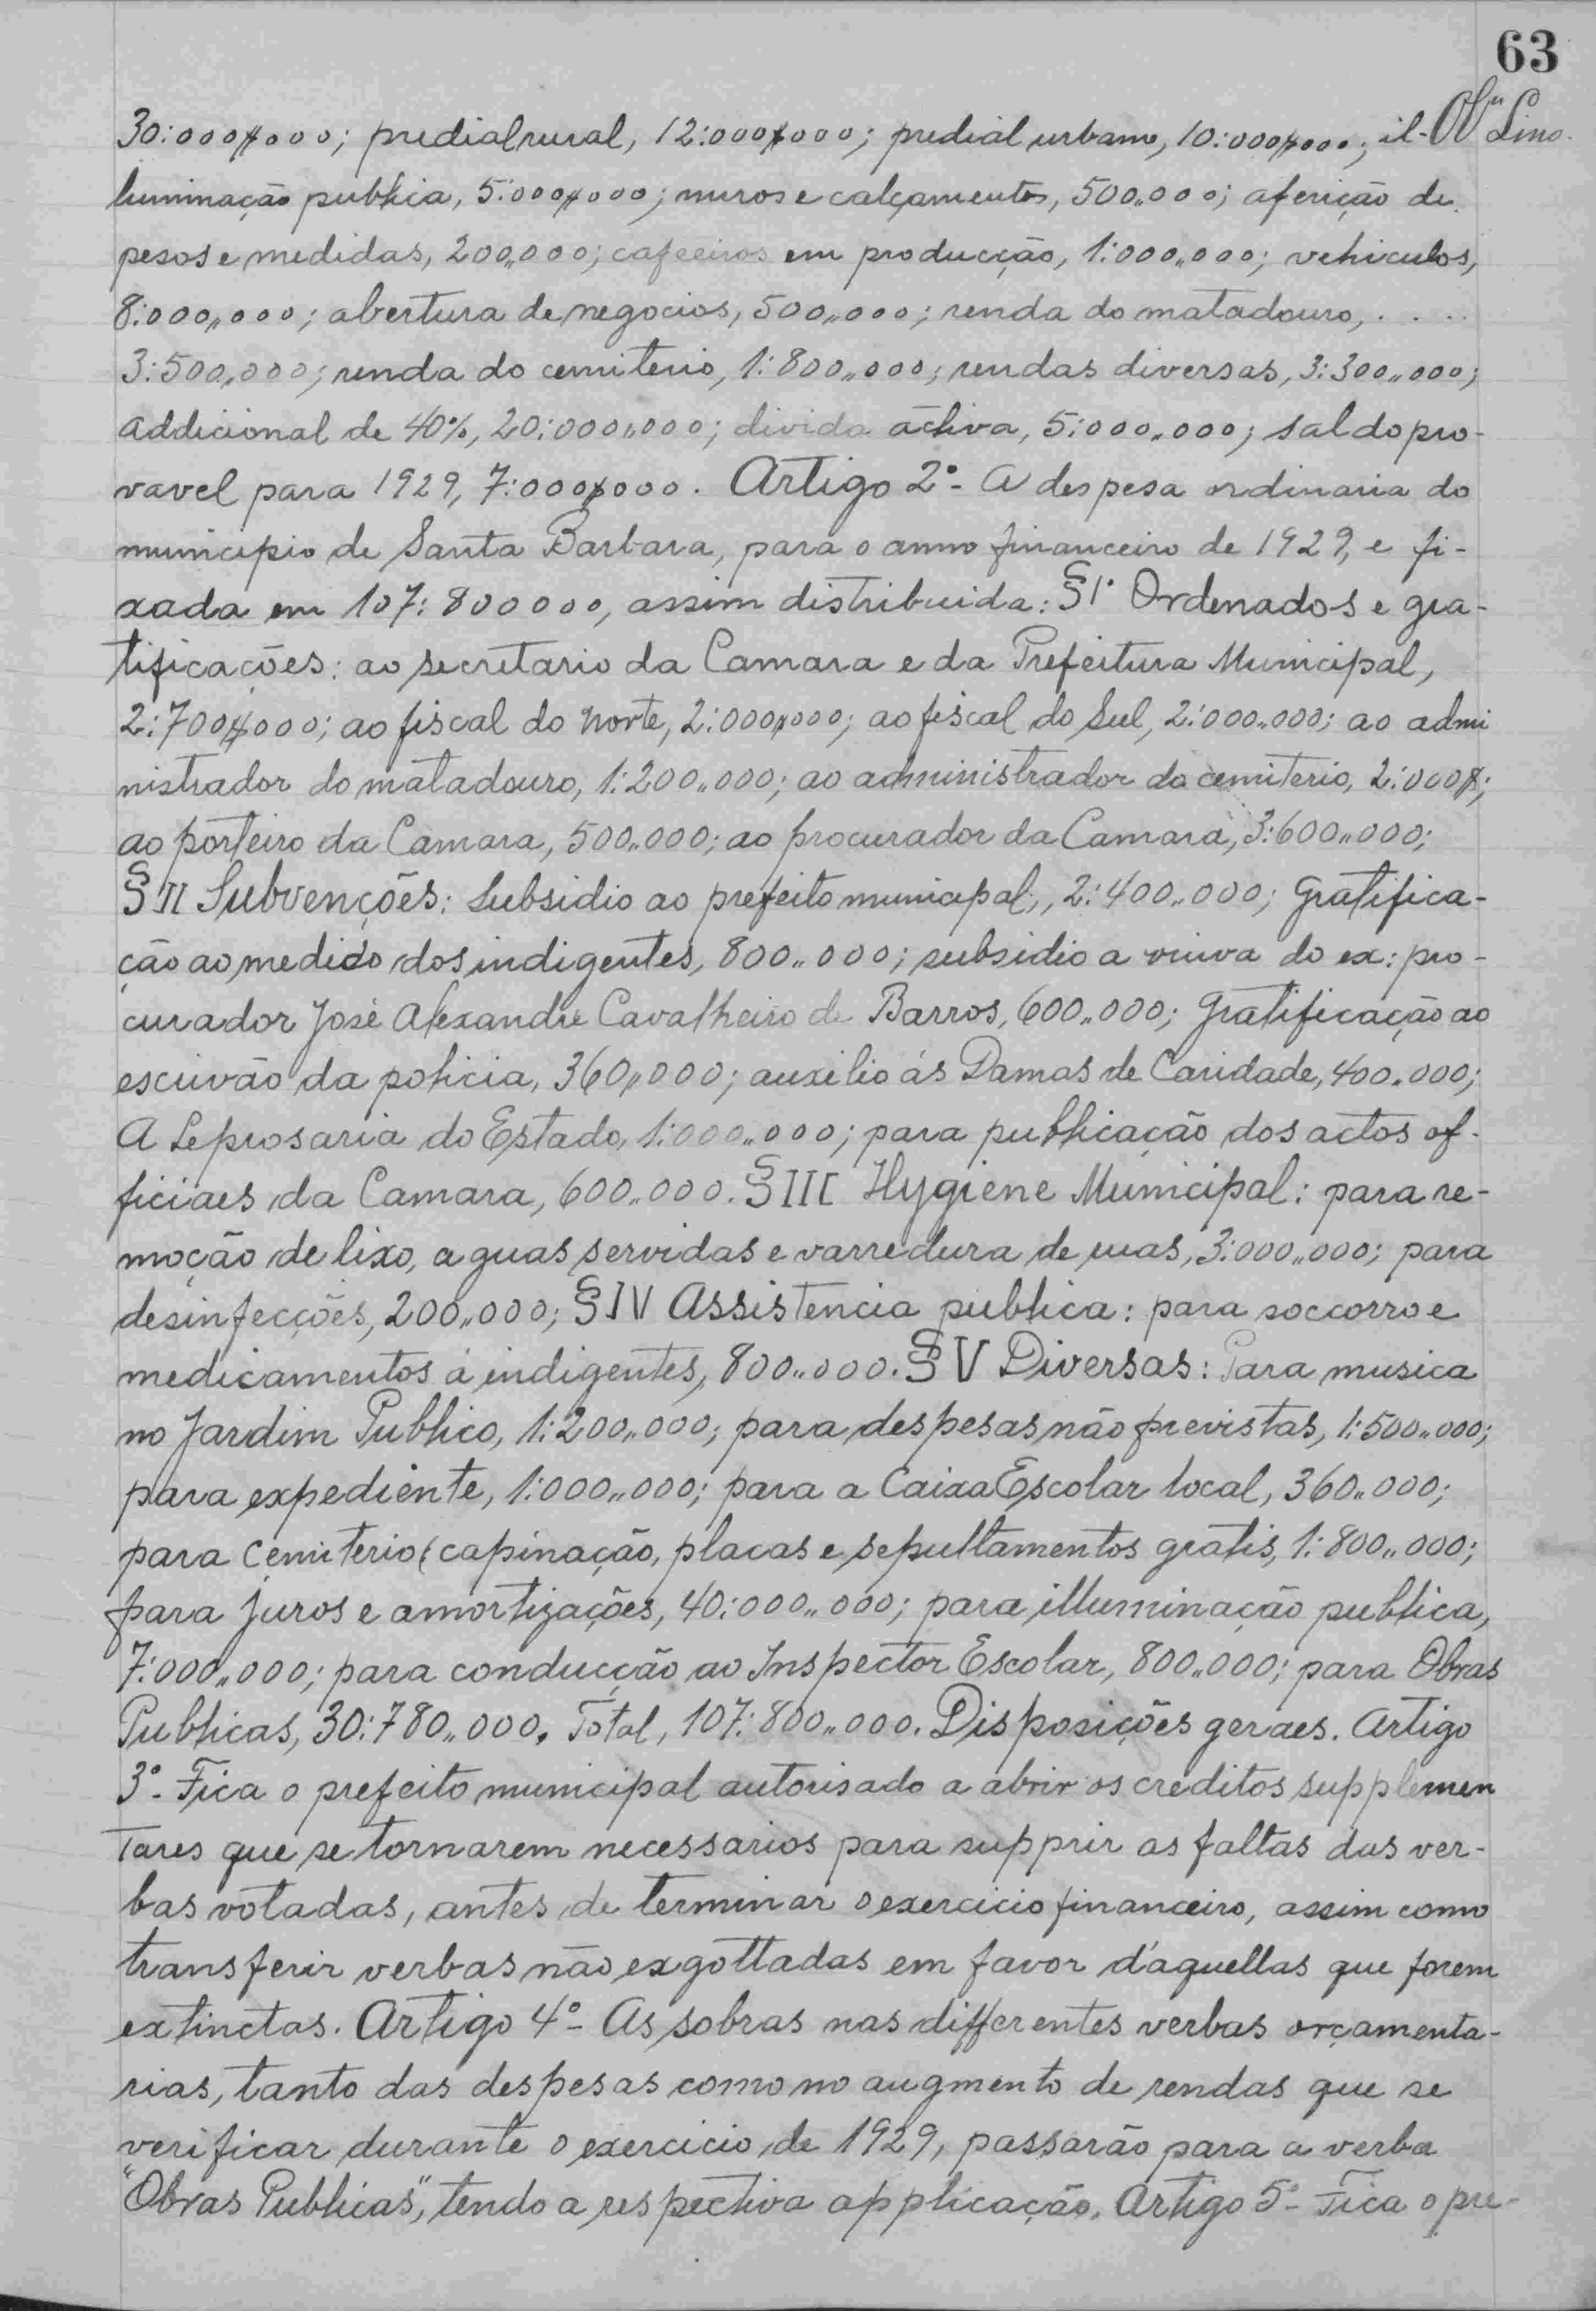 63
30:000$000; predial rural, 12:000$000; predial urbano, 10:000$000; il- Lino
luminação publica, 5:000$000; muros e calçamentos, 500,,000; aferição de
pesos e medidas, 200,,000; cafeeiros em producção, 1:000,,000; vehiculos,
8:000,,000; abertura de negocios, 500,,000; renda do matadouro, . . . .
3:500,,000; renda do cemiterio, 1:800,,000; rendas diversas, 3:300,,000;
addicional de 40%, 20:000,,000; divida activa, 5:000,,000; saldo pro-
vavel para 1929, 7:000$000. Artigo 2º- A despesa ordinaria do
municipio de Santa Barbara, para o anno financeiro de 1929, e fi-
xada em 107:800000, assim distribuida: § I° Ordenados e gra-
tificações: ao secretario da Camara e da Prefeitura Municipal,
2:700$000; ao fiscal do Norte, 2:000,,000; ao fiscal do Sul, 2:000,,000; ao admi
nistrador do matadouro, 1:200,,000; ao administrador do cemiterio, 2:000$;
ao porteiro da Camara, 500,,000; ao procurador da Camara, 3:600,,000;
§ II Subvenções: Subsidio ao prefeito municipal,, 2:400,,000; Gratifica-
ção ao medico dos indigentes, 800,,000; subsidio a viuva do ex: pro-
curador José Alexandre Cavalheiro de Barros, 600,,000; Gratificação ao
escrivão da policia, 360,,000; auxilio ás Damas de Caridade, 400,,000;
A Leprosaria do Estado, 1:000,,000; para publicação dos actos of-
ficiaes da Camara, 600,,000. § III Hygiene Municipal: para re-
moção de lixo, aguas servidas e varredura de ruas, 3:000,,000; para
desinfecções, 200,,000; § IV Assistencia publica: para soccorro e
medicamentos á indigentes, 800,,000. § V Diversas: Para musica
no Jardim Publico, 1:200,,000; para despesas não previstas, 1:500,,000;
para expediente, 1:000,,000; para a Caixa Escolar local, 360,,000;
para Cemiterio (capinação, placas e sepultamentos gratis, 1:800,,000;
para juros e amortizações, 40:000,,000; para illuminação publica,
7:000,,000; para conducção ao Inspector Escolar, 800,,000; para Obras
Publicas, 30:780,,000. Total, 107:800,,000. Disposições geraes. Artigo
3º- Fica o prefeito municipal autorisado a abrir os creditos supplemen
tares que se tornarem necessarios para supprir as faltas das ver-
bas votadas, antes de terminar o exercicio financeiro, assim como
transferir verbas não exgottadas em favor d'aquellas que forem
extinctas. Artigo 4º- As sobras nas differentes verbas orçamenta-
rias, tanto das despesas como no augmento de rendas que se
verificar durante o exercicio de 1929, passarão para a verba
"Obras Publicas", tendo a respectiva applicação. Artigo 5º- Fica o pre-